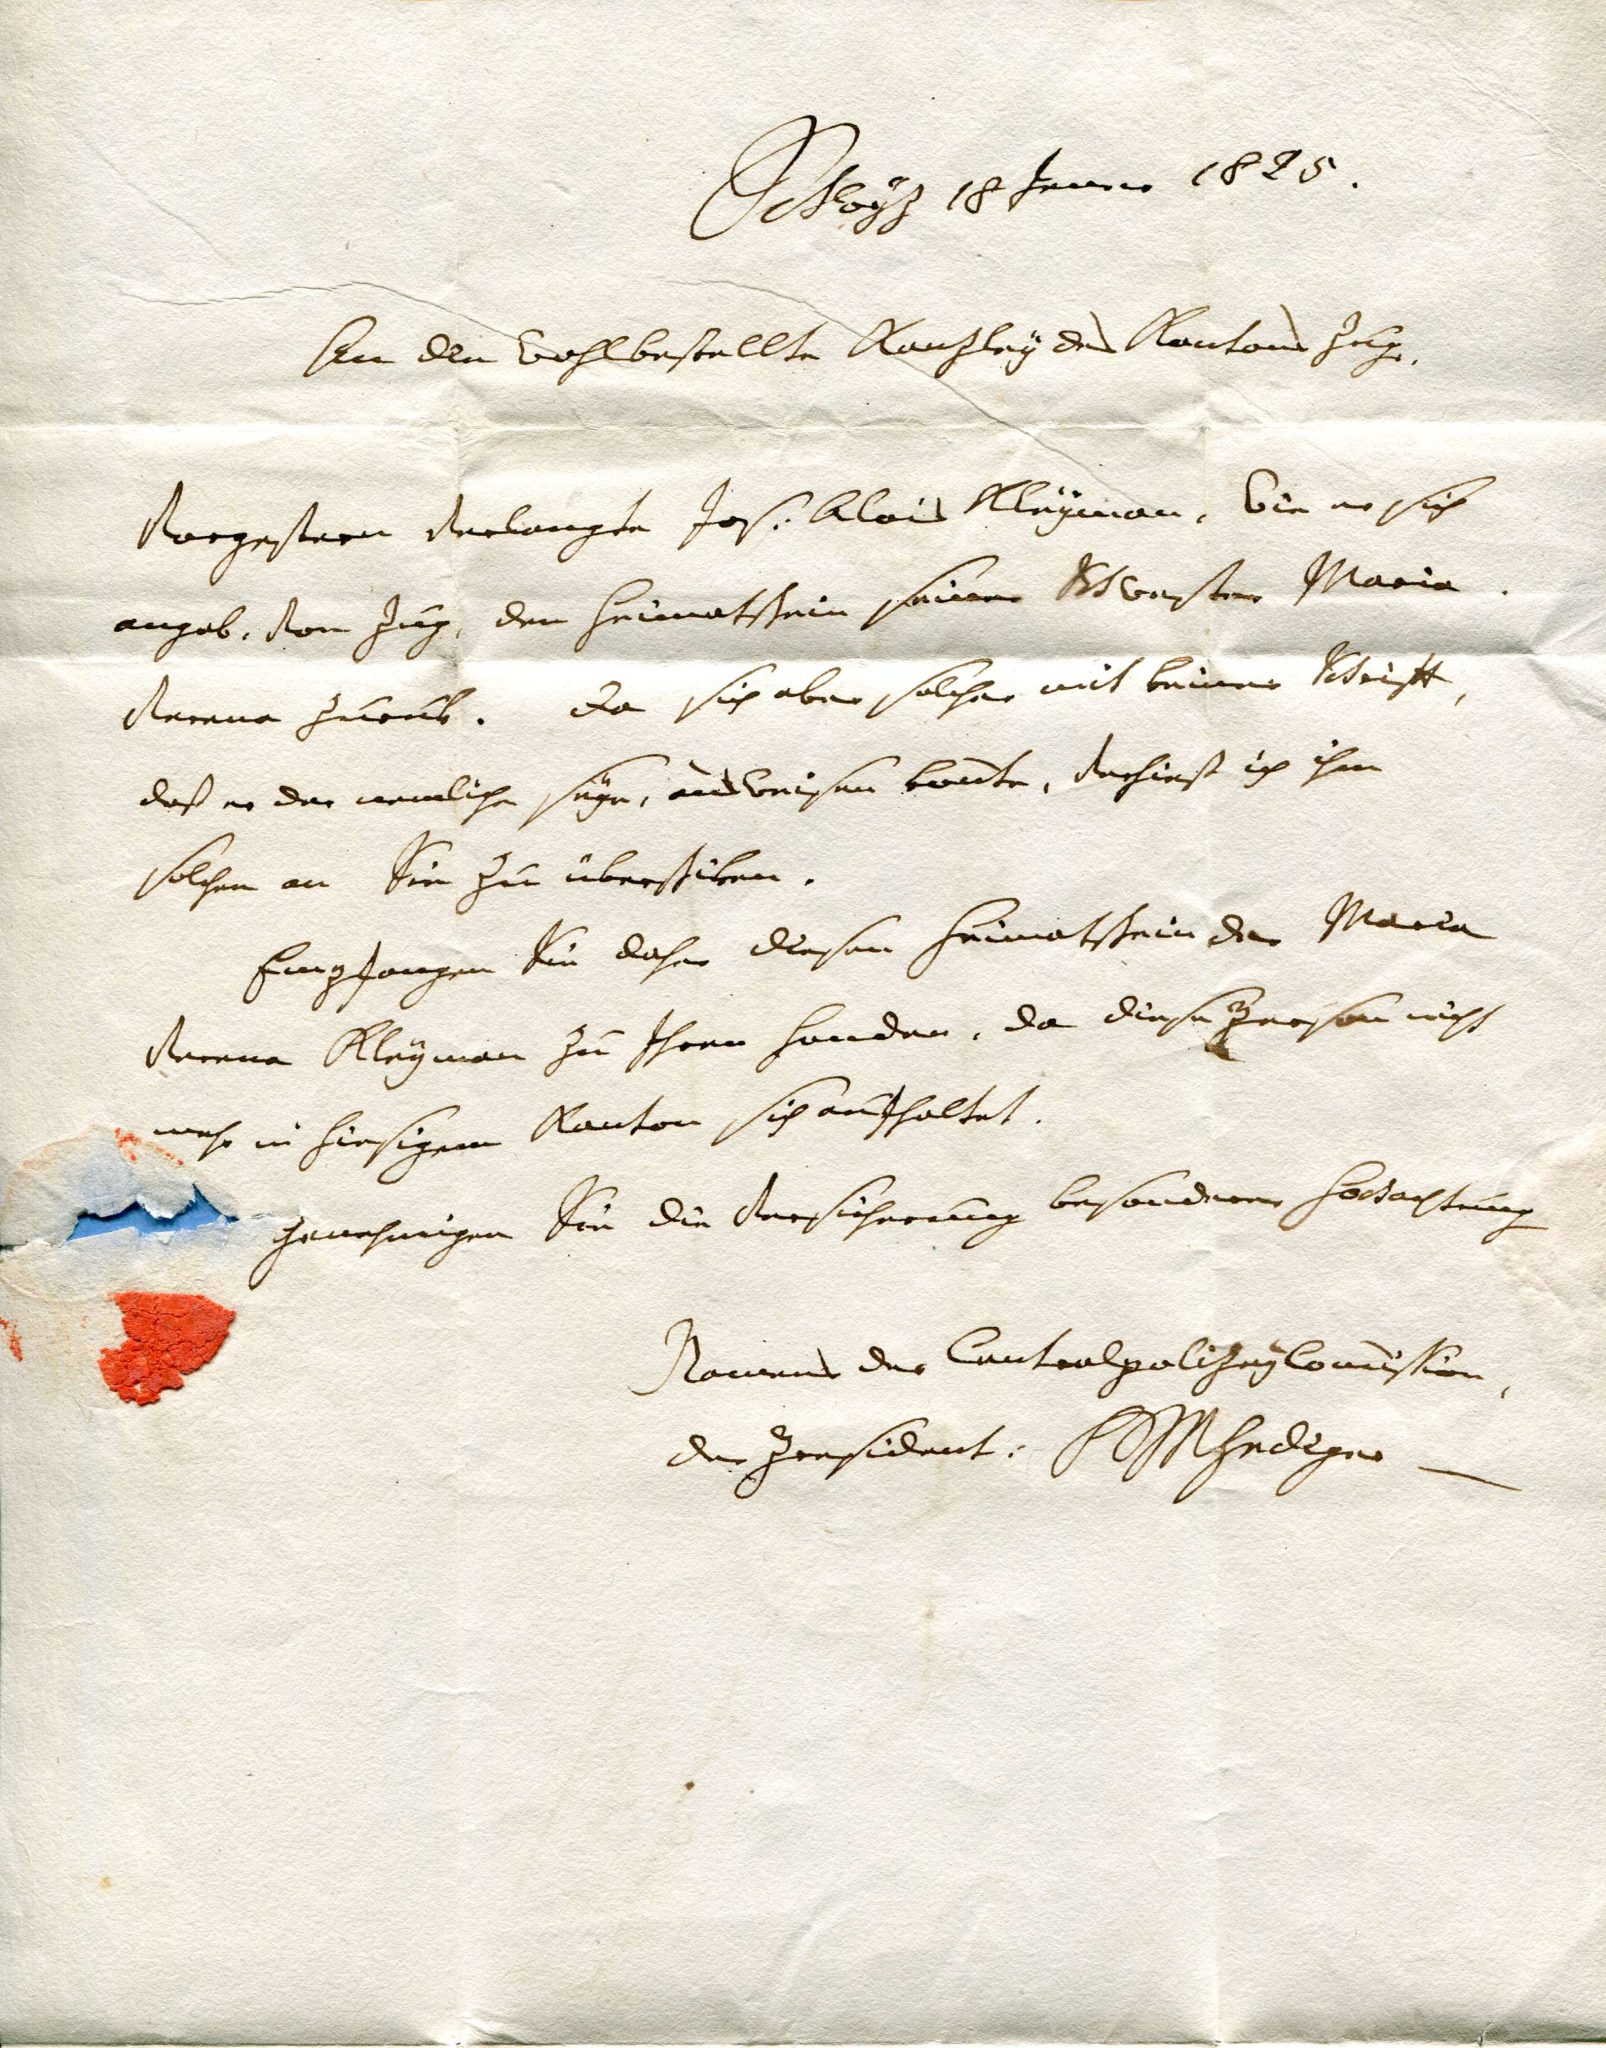 Schwÿz 18 Jenner 1825.
An die Wohlbestellte Kanzleÿ des Kantons Zug.
Vorgestern verlangte Jos. Alois Kleÿman, wie er sich
angab, von Zug, den Heimatschein seiner Schwester Maria
Verena zurük. Da sich aber solcher mit keiner Schrift,
daß er der nemliche seÿe, ausweisen konnte, verhieß ich ihm
solchen an Sie zu überschiken.
Empfangen Sie daher diesen Heimatschein der Maria
Verena Kleÿman zu Ihren Handen, da diese Person nicht
mehr in hiesigem Kanton sich aufhaltet.
Genehmigen Sie die Versicherung besonderer Hochachtung
Namens der Centralpolizeÿ Commission,
der President: Hediger